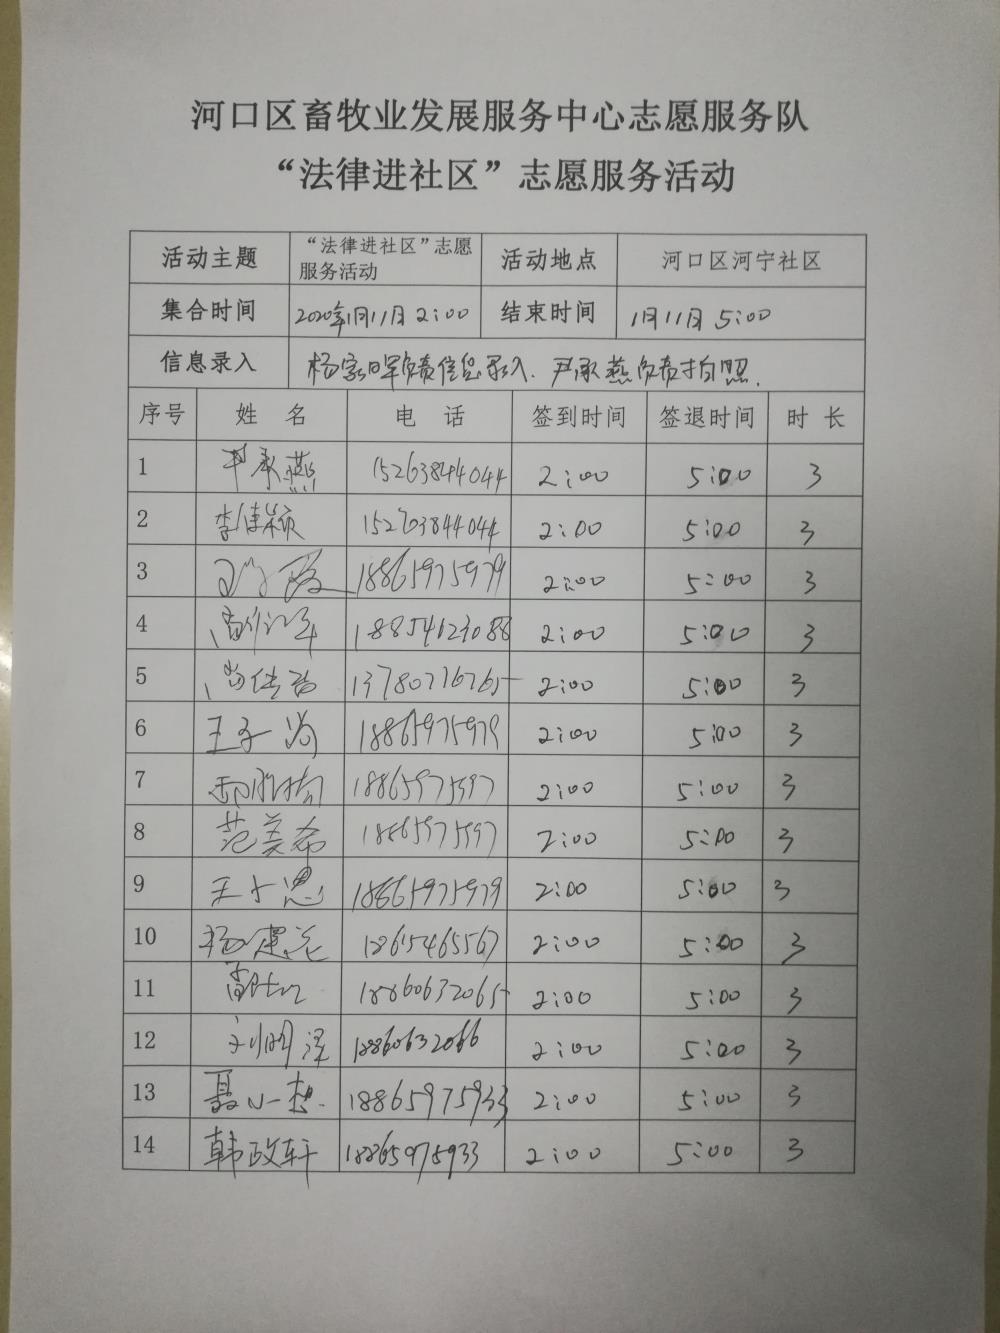 河口区畜牧业发展服务中心志愿服务队
“法律进社区”志愿服务活动
活动主题 “法律进社区”志愿服务活动 活动地点 河口区河宁社区
集合时间 2020年1月11月 2:00 结束时间 1月11月 5:00
信息录入 杨家晖负责信息录入.尹承燕负责拍照.
序号 姓名 电话 签到时间 签退时间 时长
1 尹承燕 15263844044 2:00 5:00 3
2 李佳颖 15263844044 2:00 5:00 3
3 18865975979 2:00 5:00 3
4 18854623088 2:00 5:00 3
5 13780716765 2:00 5:00 3
6 王子尚 18865975979 2:00 5:00 3
7 18865975597 2:00 5:00 3
8 范美希 18865975597 2:00 5:00 3
9 王子恩 18865975979 2:00 5:00 3
10 2:00 5:00 3
11 18860632065 2:00 5:00 3
12 刘明泽 18860632066 2:00 5:00 3
13 聂小想 18865975933 2:00 5:00 3
14 韩政轩 18865975933 2:00 5:00 3